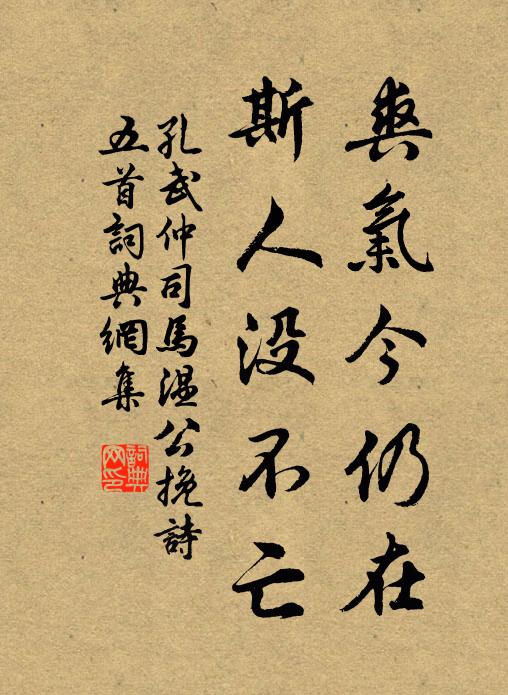 爽氣今仍在
斯人没不亡
孔武仲司馬温公挽詩
五首詞典網集
詞典网印